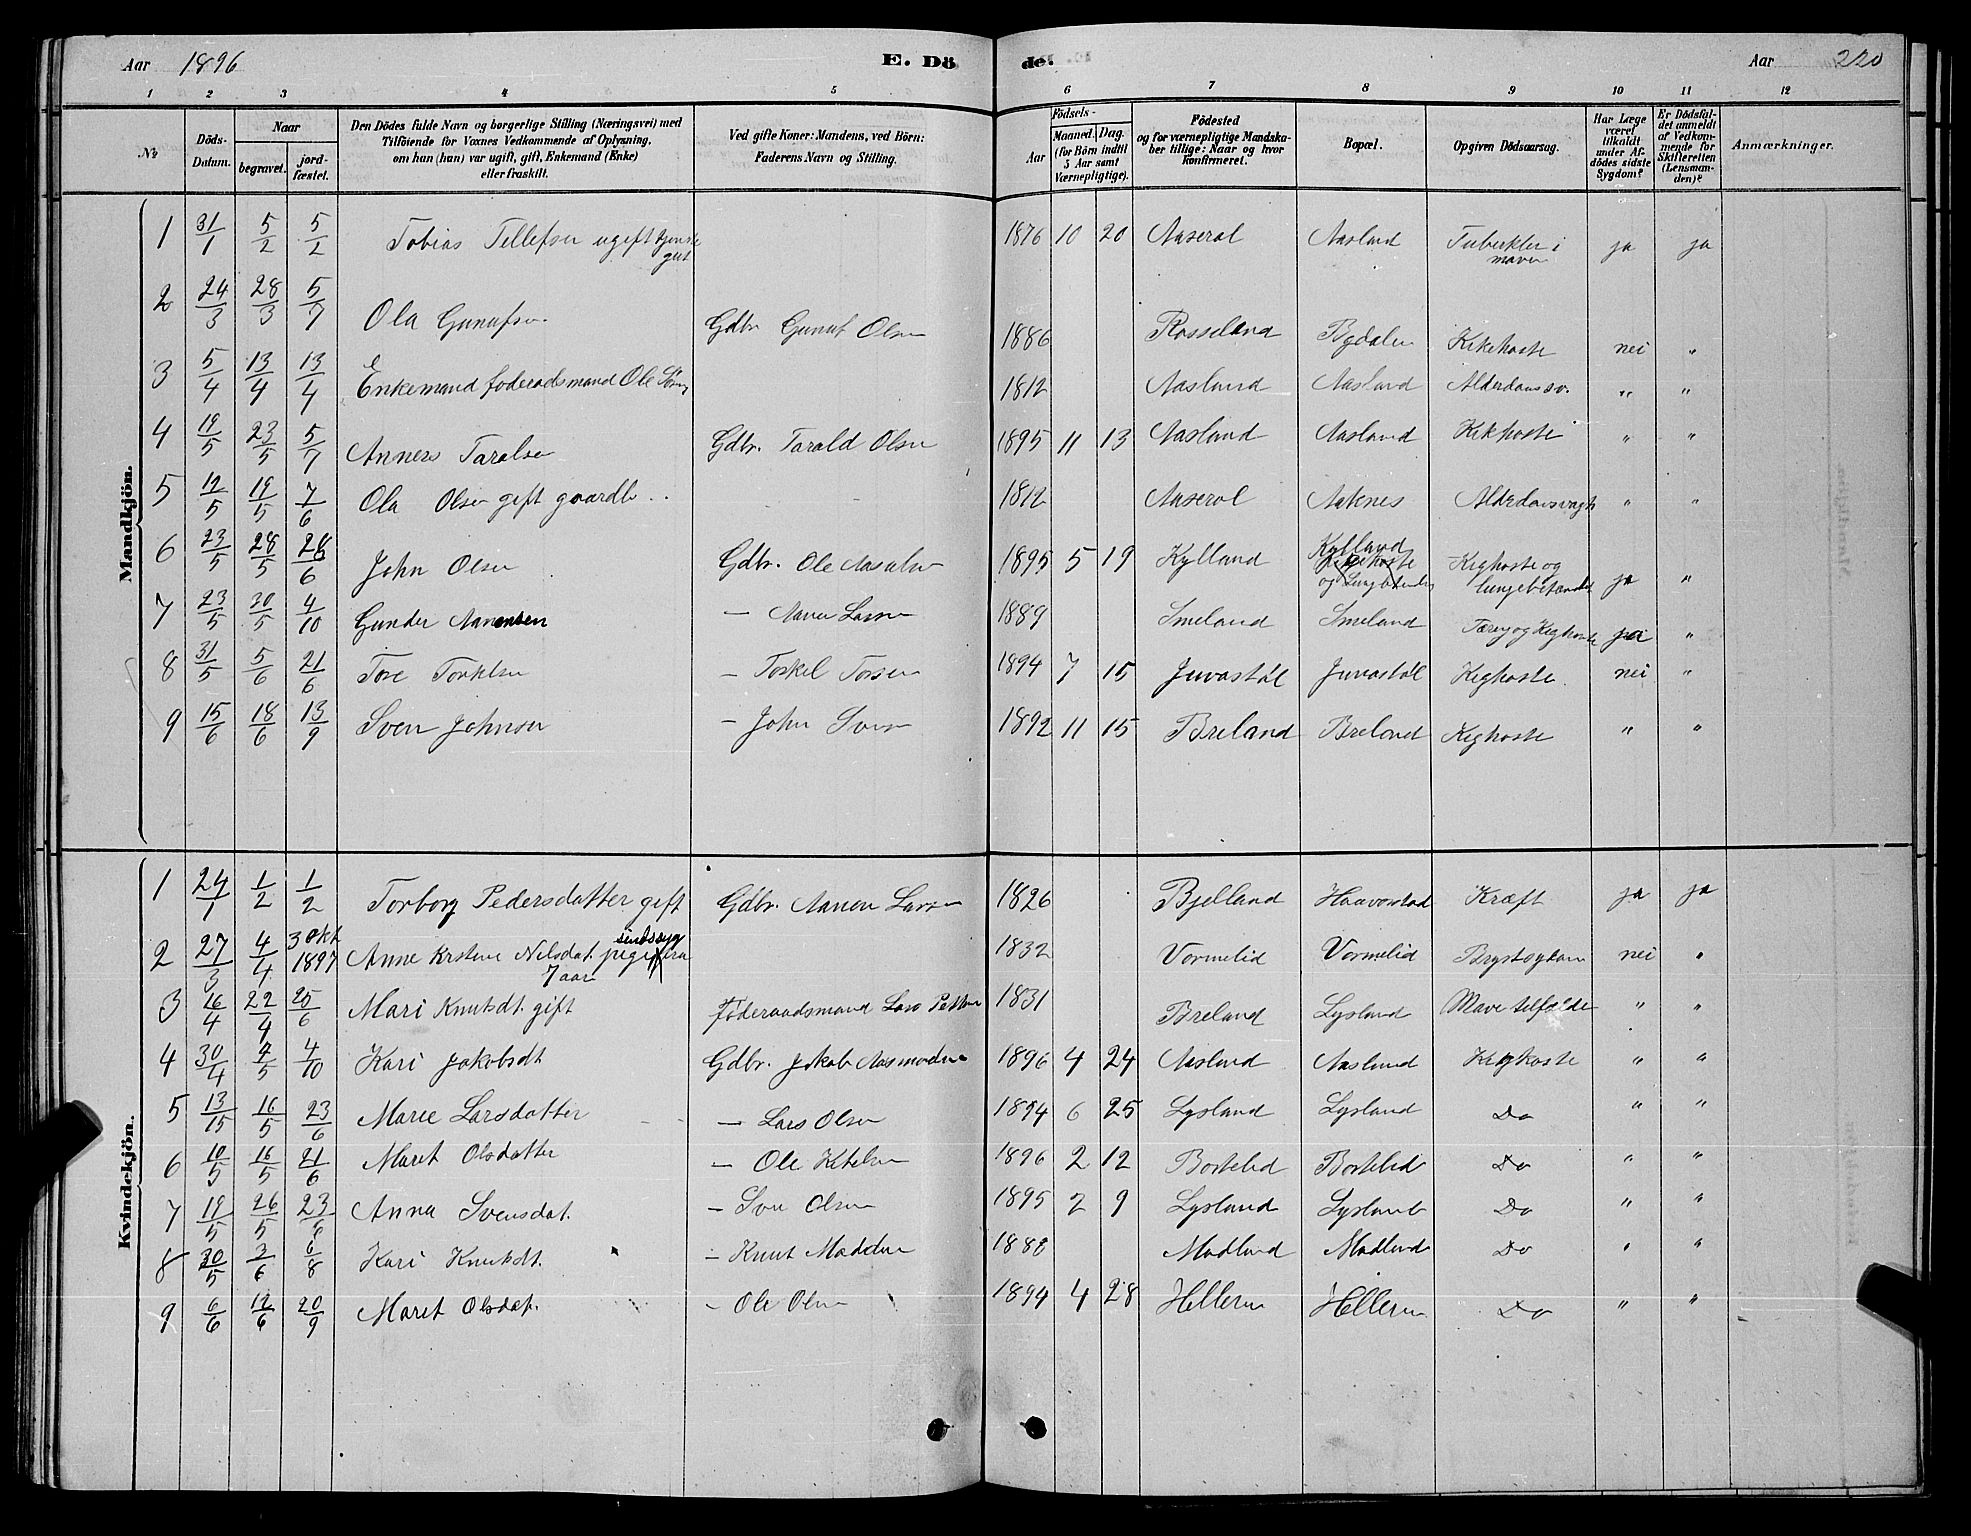 Aar 1896 E. Dö
de. Aar 220
1 2 3 4 5
6 7 8 9 10 11 12
No
Döds-Datum.
Naar
begravet.
jord-fæstet.
Den Dödes fulde Navn og borgerlige Stilling (Næringsvei) med
Tilföiende for Voxnes Vedkommende af Oplysning,
om han (hun) var ugift, gift, Enkemand (Enke)
eller fraskilt.
Ved gifte Koner: Mandens, ved Börn:
Faderens Navn og Stilling.
Födsels-
Aar
Maaned.
Dag.
(for Börn indtil
5 Aar samt
Værnepligtige).
Födested
og for værnepligtige Mandska-
ber tillige: Naar og hvor
konfirmeret.
Bopæl.
Opgiven Dödsaarsag.
Har Læge
været
tilkaldt
under Af-
dödes sidste
Sygdom?
Er Dödsfal-
det anmeldt
af Vedkom-
mende for
Skifteretten
(Lensman-
den)?
Anmærkninger.
Mandkjön.
1 31/1 5/2 5/2 Tobias Tellefsen ugift tjeneste
gut
1876 10 20 Aaseral Aasland Tuberkler i
maven
ja ja
2 24/3 28/3 5/7 Ola Gunufsen Gdbr Gunuf Olsen 1886 Rosseland Bgdalen Kikehoste nei "
3 5/4 13/4 13/4 Enkemand foderaadsmand Ole 1812 Aasland Aasland Alderdomssv. " "
4 19/5 23/5 5/7 Anners Taralsen Gdbr. Tarald Olsen 1895 11 13 Aasland Aasland Kikhoste " "
5 12/5 19/5 7/6 Ola Olsen gift gaardb.. 1812 Aaseral Aaknes Alderdomsvagh " "
6 23/5 28/5 28/6 John Olsen Gdbr. Ole Aasulsen 1895 5 19 Kylland Kylland
Kikhoste
og Lungebetændelse
Kighoste og
lungebetændels
ja "
7 23/5 30/5 4/10 Gunder Aanensen — Aanen Larsen 1889 Smeland Smeland Tæring og Kighoste ja "
8 31/5 5/6 21/6 Tore Torkelsen — Torkel Torsen 1894 7 15 Juvastøl Juvastøl Kighoste nei "
9 15/6 18/6 13/9 Sven Johnsen — John Svensen 1892 11 15 Breland Breland Kighoste " "
Kvindekjön.
1 24/1 1/2 1/2 Torborg Pedersdatter gift Gdbr. Aanen Larsen 1826 Bjelland Haaverstad Kræft ja ja
2 27/3 4/4 3 okt
1897 Anne Kirstene Nilsdat. pige fra
sindssyg
7 aar
1832 Vormelid Vormelid Brystsygdom nei "
3 16/4 22/4 25/6 Mari Knutsdt. gift Føderaadsmand Lars Pettersen 1831 Breland Lysland Mave tilfælde " "
4 30/4 4/5 4/10 Kari Jakobsdt Gdbr. Jakob Aasmundsen 1896 4 24 Aasland Aasland Kighoste " "
5 13/15 16/5 23/6 Maree Larsdatter — Lars Olsen 1894 6 25 Lysland Lysland Do " "
6 10/5 16/5 21/6 Maret Olsdatter — Ole Ketelsen 1896 2 12 Bortelid Bortelid Do " "
7 19/5 26/5 23/6 Anna Svensdat. — Sven Olsen 1895 2 9 Lysland Lysland Do " "
8 30/5 3/6 6/8 Kari Knutsdt. — Knut Madden 1888 Madland Madland Do " "
9 6/6 12/6 20/9 Maret Olsdat. — Ole Olsen 1894 4 28 Helleren Helleren Do " "